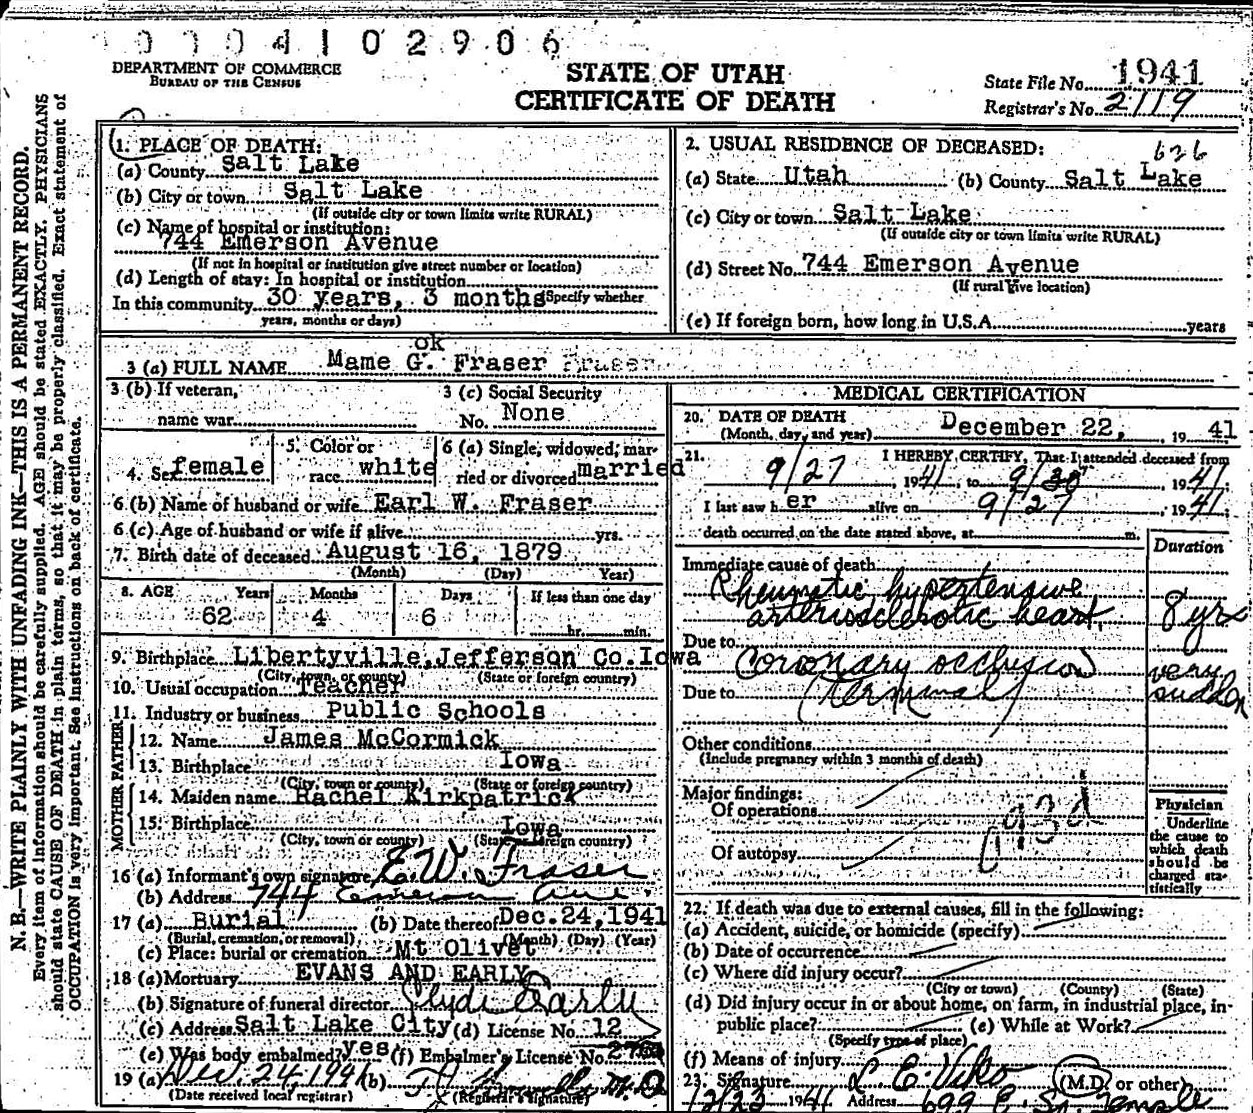 0 0 0 4 1 0 2 9 0 6
DEPARTMENT OF COMMERCE
BUREAU OF THE CENSUS
STATE OF UTAH
CERTIFICATE OF DEATH
State File No. 1941
Registrar's No. 2119
N. B.—WRITE PLAINLY WITH UNFADING INK—THIS IS A PERMANENT RECORD.
Every item of information should be carefully supplied. AGE should be stated EXACTLY. PHYSICIANS
should state CAUSE OF DEATH in plain terms, so that it may be properly classified. Exact statement of
OCCUPATION is very important. See instructions on back of certificate.
1. PLACE OF DEATH:
(a) County Salt Lake
(b) City or town Salt Lake
(If outside city or town limits write RURAL)
(c) Name of hospital or institution:
744 Emerson Avenue
(If not in hospital or institution give street number or location)
(d) Length of stay: In hospital or institution
In this community 30 years, 3 months (Specify whether
years, months or days)
2. USUAL RESIDENCE OF DECEASED:
626
(a) State Utah (b) County Salt Lake
(c) City or town Salt Lake
(If outside city or town limits write RURAL)
(d) Street No. 744 Emerson Avenue
(If rural give location)
(e) If foreign born, how long in U.S.A. years
ok
3 (a) FULL NAME Mame G. Fraser Fraser
3 (b) If veteran,
name war
3 (c) Social Security
No. None
4. Sex female
5. Color or
race white
6 (a) Single, widowed, mar-
ried or divorced married
6 (b) Name of husband or wife Earl W. Fraser
6 (c) Age of husband or wife if alive yrs.
7. Birth date of deceased August 16, 1879
(Month) (Day) Year)
8. AGE Years Months Days If less than one day
62 4 6 hr. min.
9. Birthplace Libertyville, Jefferson Co. Iowa
(City, town, or county) (State or foreign country)
10. Usual occupation Teacher
11. Industry or business Public Schools
FATHER
12. Name James McCormick
13. Birthplace Iowa
(City, town or county) (State or foreign country)
MOTHER
14. Maiden name Rachel Kirkpatrick
15. Birthplace Iowa
(City, town or county) (State or foreign country)
16 (a) Informant's own signature E. W. Fraser
(b) Address 744 Emerson Ave.
17 (a) Burial (b) Date thereof Dec. 24, 1941
(Burial, cremation, or removal) (Month) (Day) (Year)
(c) Place: burial or cremation Mt Olivet
18 (a) Mortuary EVANS AND EARLY
(b) Signature of funeral director Clyde Early
(c) Address Salt Lake City (d) License No. 12
(e) Was body embalmed? yes (f) Embalmer's License No.
19 (a) Dec. 24, 1941 (b) M.D.
(Date received local registrar) (Registrar's signature)
MEDICAL CERTIFICATION
20. DATE OF DEATH
(Month, day, and year) December 22, , 19 41
21. I HEREBY CERTIFY, That I attended deceased from
9/27 , 1941, to 9/30 , 1941.
I last saw h er alive on 9/27 , 1941.
death occurred on the date stated above, at m.
Duration
Immediate cause of death
Rheumatic, hypertensive
arteriosclerotic heart 8 yrs
Due to
Coronary occlusion very
Due to (Terminal) sudden
Other conditions
(Include pregnancy within 3 months of death)
Major findings:
Of operations
93d
Of autopsy
Physician
Underline
the cause to
which death
should be
charged sta-
tistically
22. If death was due to external causes, fill in the following:
(a) Accident, suicide, or homicide (specify)
(b) Date of occurrence
(c) Where did injury occur?
(City or town) (County) (State)
(d) Did injury occur in or about home, on farm, in industrial place, in-
public place? (e) While at Work?
(Specify type of place)
(f) Means of injury
23. Signature L. E. Viko (M.D. or other)
12/23 1941 Address 699 E. So Temple